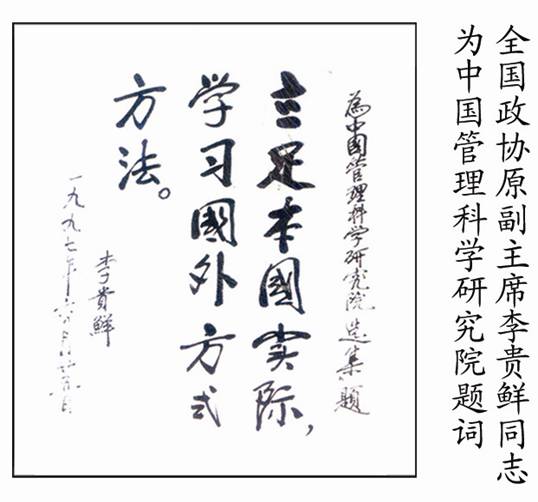 全国政协原副主席李贵鲜同志
为中国管理科学研究院题词
為中國管理科学研究院选集題
立足本國实际,
学习國外方式
方法。
李貴鮮
一九九七年六月廿日